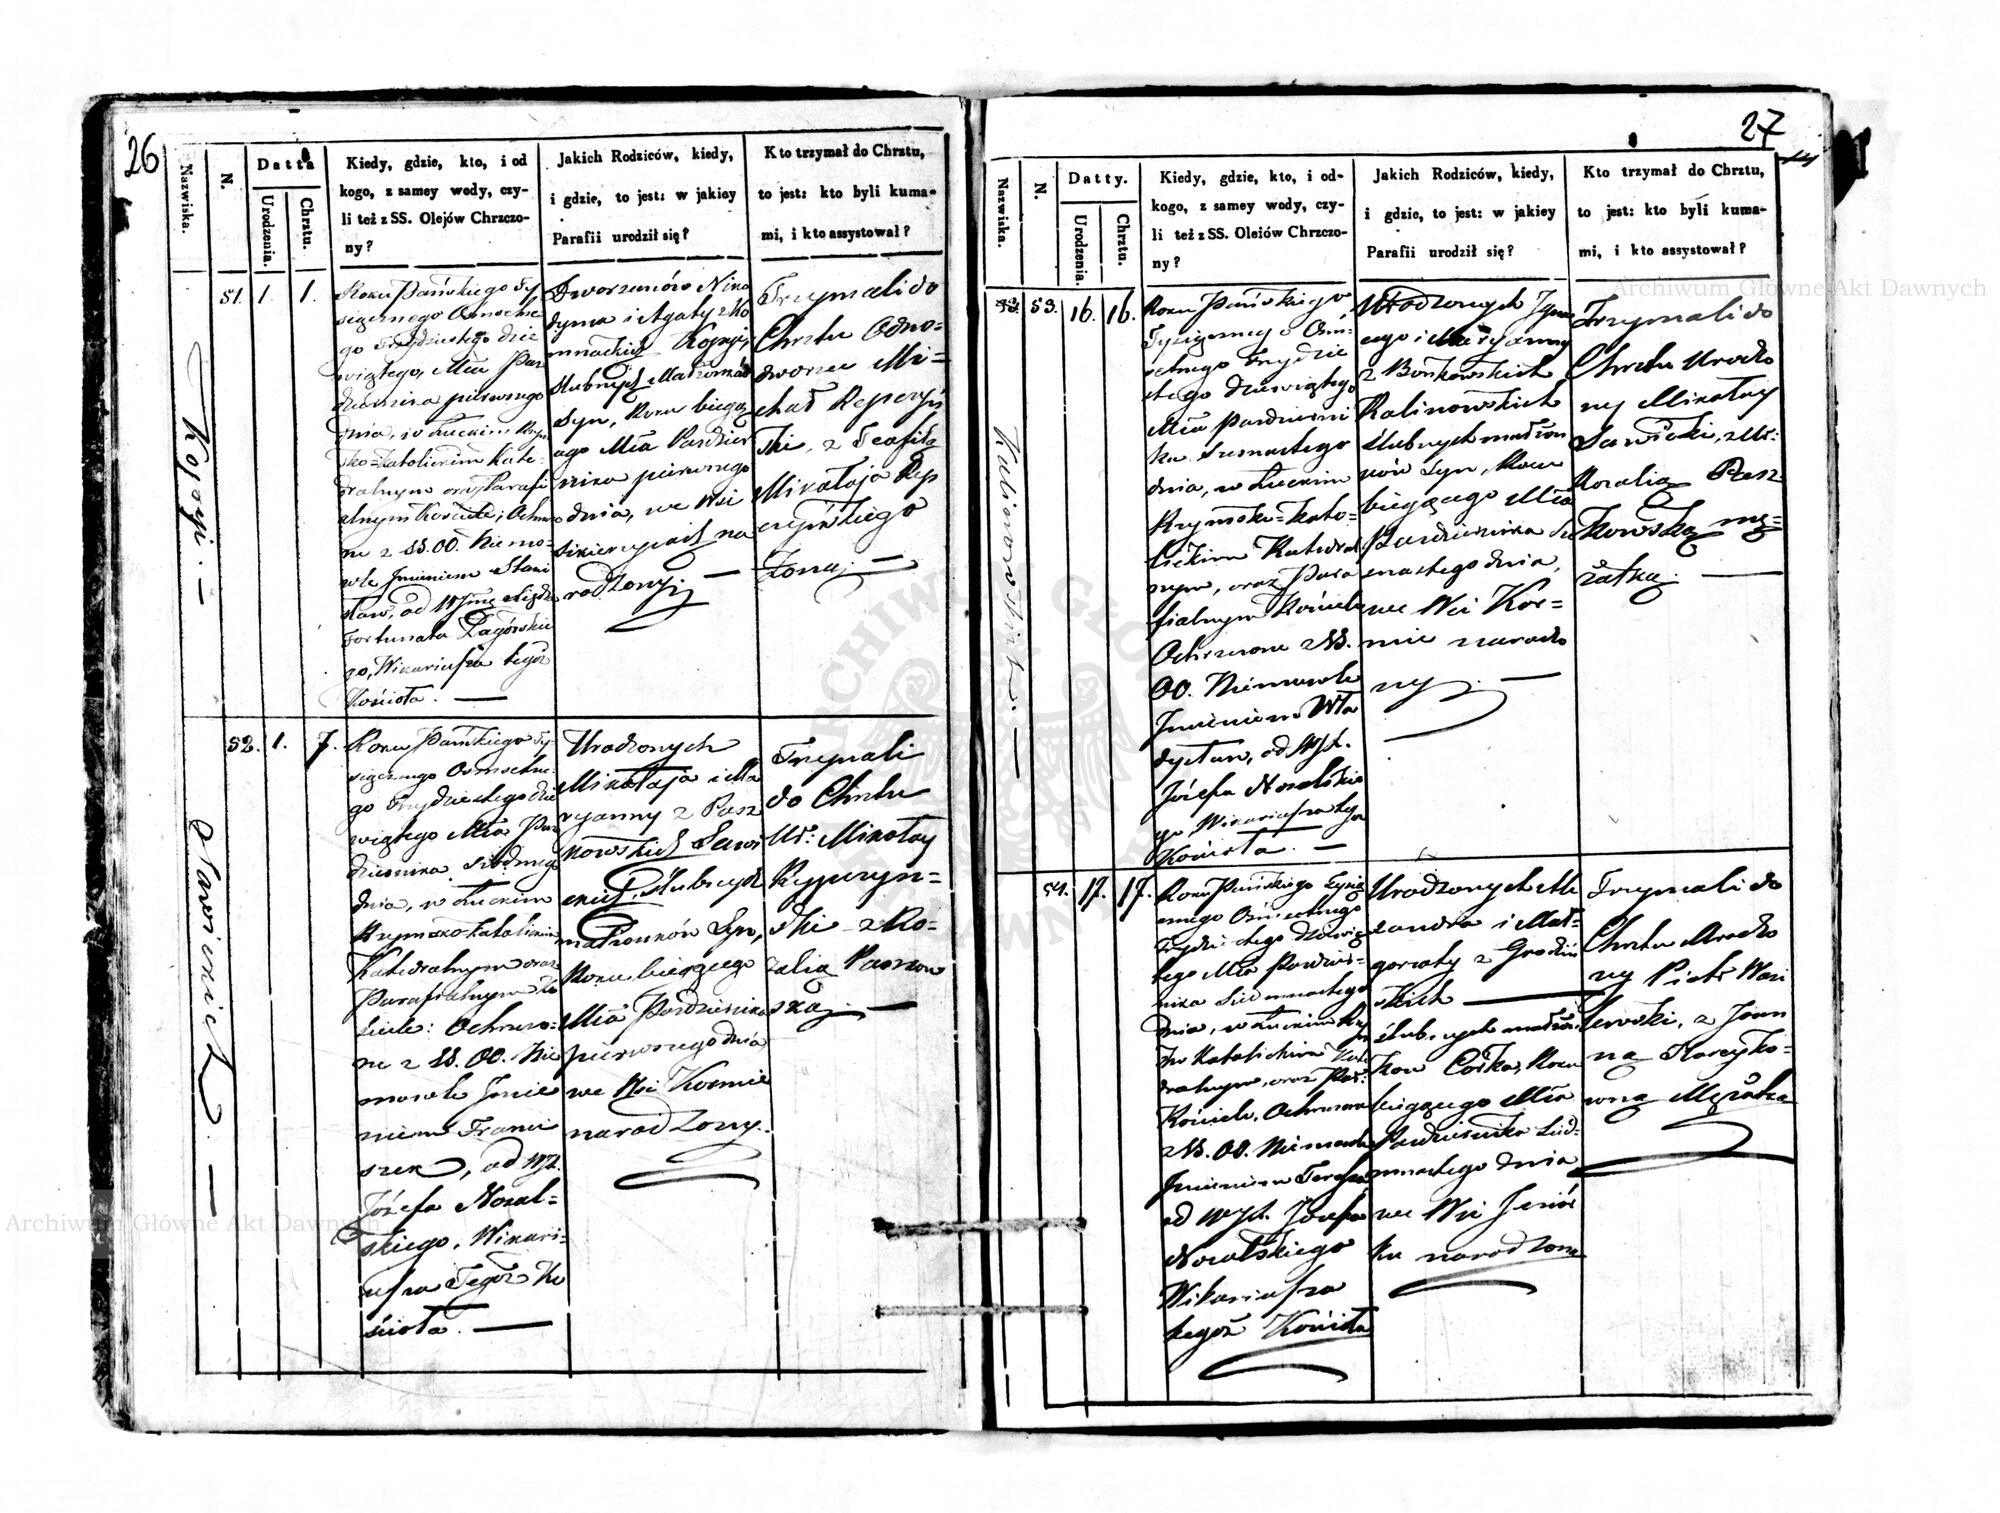 26
Nazwiska.
N.
Datta
Urodzenia.
Chrztu.
Kiedy, gdzie, kto, i od
kogo, z samey wody, czy-
li też z SS. Olejów Chrzczo-
ny?
Jakich Rodziców, kiedy,
i gdzie, to jest: w jakiey
Parafii urodził się?
Kto trzymał do Chrztu,
to jest: kto byli kuma-
mi, i kto assystował?
51. 1. 1.
Roku Pańskiego Ty
siącznego Osmsetne
go Trzydziestego dzie
wiątego, Mca Paź
dziernika pierwszego
dnia, w Łuckim Rzym
sko-Katolickim Kate-
dralnym oraz Parafi
alnym Kościele; Ochrzczo
ne z SS. OO. Niemo-
wle Imieniem Stani
sław, od
Fortunata Zagórskie
go, Wikariusza tegoż
Kościoła. —
Dworzanów Niko
dyma i Agaty z Ko
Kozyji,
ślubnych Małżonków
Syn, Roku bieżą
cego Mca Paździer
nika pierwszego
dnia, we Wsi
na
rodzony. —
Trzymali do
Chrztu Odno-
dworzec Mi-
chał Repczyń
ski, z Teofilą
Mikołaja Rep
czyńskiego
Żoną. —
52. 1. 7.
Roku Pańskiego Ty-
siącznego Osmsetne-
go Trzydziestego dzie
wiątego Mca Paź
dziernika siódmego
dnia, w Łuckim
Rzymsko-Katolickim
Katedralnym oraz
Parafialnym Ko
ściele: Ochrzczo-
ne z SS. OO. Nie
mowle Imie
niem Franci
szek, od WJX.
Józefa Nosal-
skiego, Wikari-
usza Tegoż Ko
ścioła. —
Urodzonych
Mikołaja i Ma
ryanny z Pasz
kowskich Sawi
ckich, ślubnych
małżonków Syn,
Roku bieżącego
Mca Października
pierwszego dnia,
we Wsi Kormie
narodzony.
Trzymali
do Chrztu
Ur: Mikołay
Repczyń-
ski z Ro-
zalią Paszkow
ską. —
27
Nazwiska.
N.
Datty.
Urodzenia.
Chrztu.
Kiedy, gdzie, kto, i od-
kogo, z samey wody, czy-
li też z SS. Oleiów Chrzczo-
ny?
Jakich Rodziców, kiedy,
i gdzie, to jest: w jakiey
Parafii urodził się?
Kto trzymał do Chrztu,
to jest: kto byli kuma-
mi, i kto assystował?
53. 16. 16.
Roku Pańskiego
Tysiącznego Osm-
setnego Trzydzie
stego dziewiątego
Mca Październi
ka Szesnastego
dnia, w Łuckim
Rzymsko-Kato-
lickim Katedral
nym, oraz Para
fialnym Kościele
Ochrzczone z SS.
OO. Niemowle
Imieniem Wła
dysław, od WJX.
Józefa Nosalskie
go, Wikariusza tegoż
Kościoła. —
Urodzonych Igna
cego i Maryanny
z Bońkowskich
Kalinowskich
ślubnych małżon
ków Syn, Roku
bieżącego Mca
Października Sze
snastego dnia,
we Wsi Kor-
mie narodzo
ny. —
Trzymali do
Chrztu Urodzo
ny Mikołay
Sawicki, z Ur:
Rozalią Pasz
kowską mę-
żatką. —
54. 17. 17.
Roku Pańskiego Tysią
cznego Osmsetnego
Trzydziestego Dziewią
tego Mca Paździer-
nika Siedmnastego
dnia, w Łuckim Rzym
sko Katolickim Kate
dralnym, oraz Par:
Kościele, Ochrzczone
z SS. OO. Niemowle
Imieniem
od WJX. Józefa
Nosalskiego
Wikariusza
tegoż Kościoła
Urodzonych Ale
xandra i Mał-
gorzaty z
skich —
ślubnych małżon
ków Córka, Roku
bieżącego Mca
Października Sied-
mnastego dnia
we Wsi
narodzona
Trzymali do
Chrztu Urodzo
ny Piotr Wasi
lewski, z Joan
ną
wną Mężatką
Archiwum Główne Akt Dawnych
Archiwum Główne Akt Dawnych